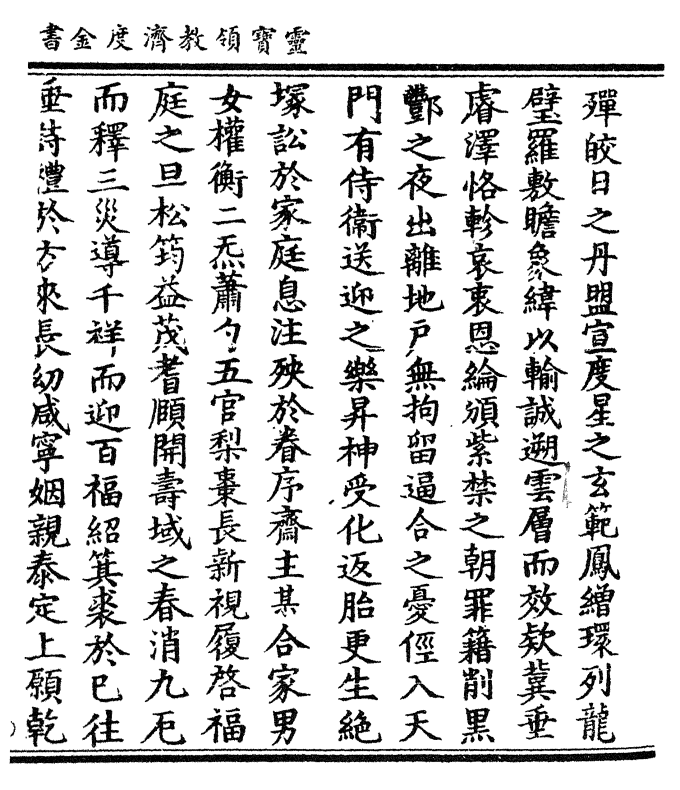 靈寶領教濟度金書
殫皎日之丹盟宣度星之玄範鳳繒環列龍
璧羅敷瞻象緯以輸誠遡雲層而效欵冀垂
睿澤恪軫哀衷恩綸頒紫禁之朝罪籍削黑
酆之夜出離地戶無拘留逼合之憂徑入天
門有侍衞送迎之樂昇神受化返胎更生絶
塚訟於家庭息注殃於眷序齋主某合家男
女權衡二炁蕭勺五官梨棗長新視履啓福
庭之旦松筠益茂耆頤開壽域之春消九厄
而釋三災導千祥而迎百福紹箕裘於已往
垂詩禮於方來長幼咸寧姻親泰定上願乾